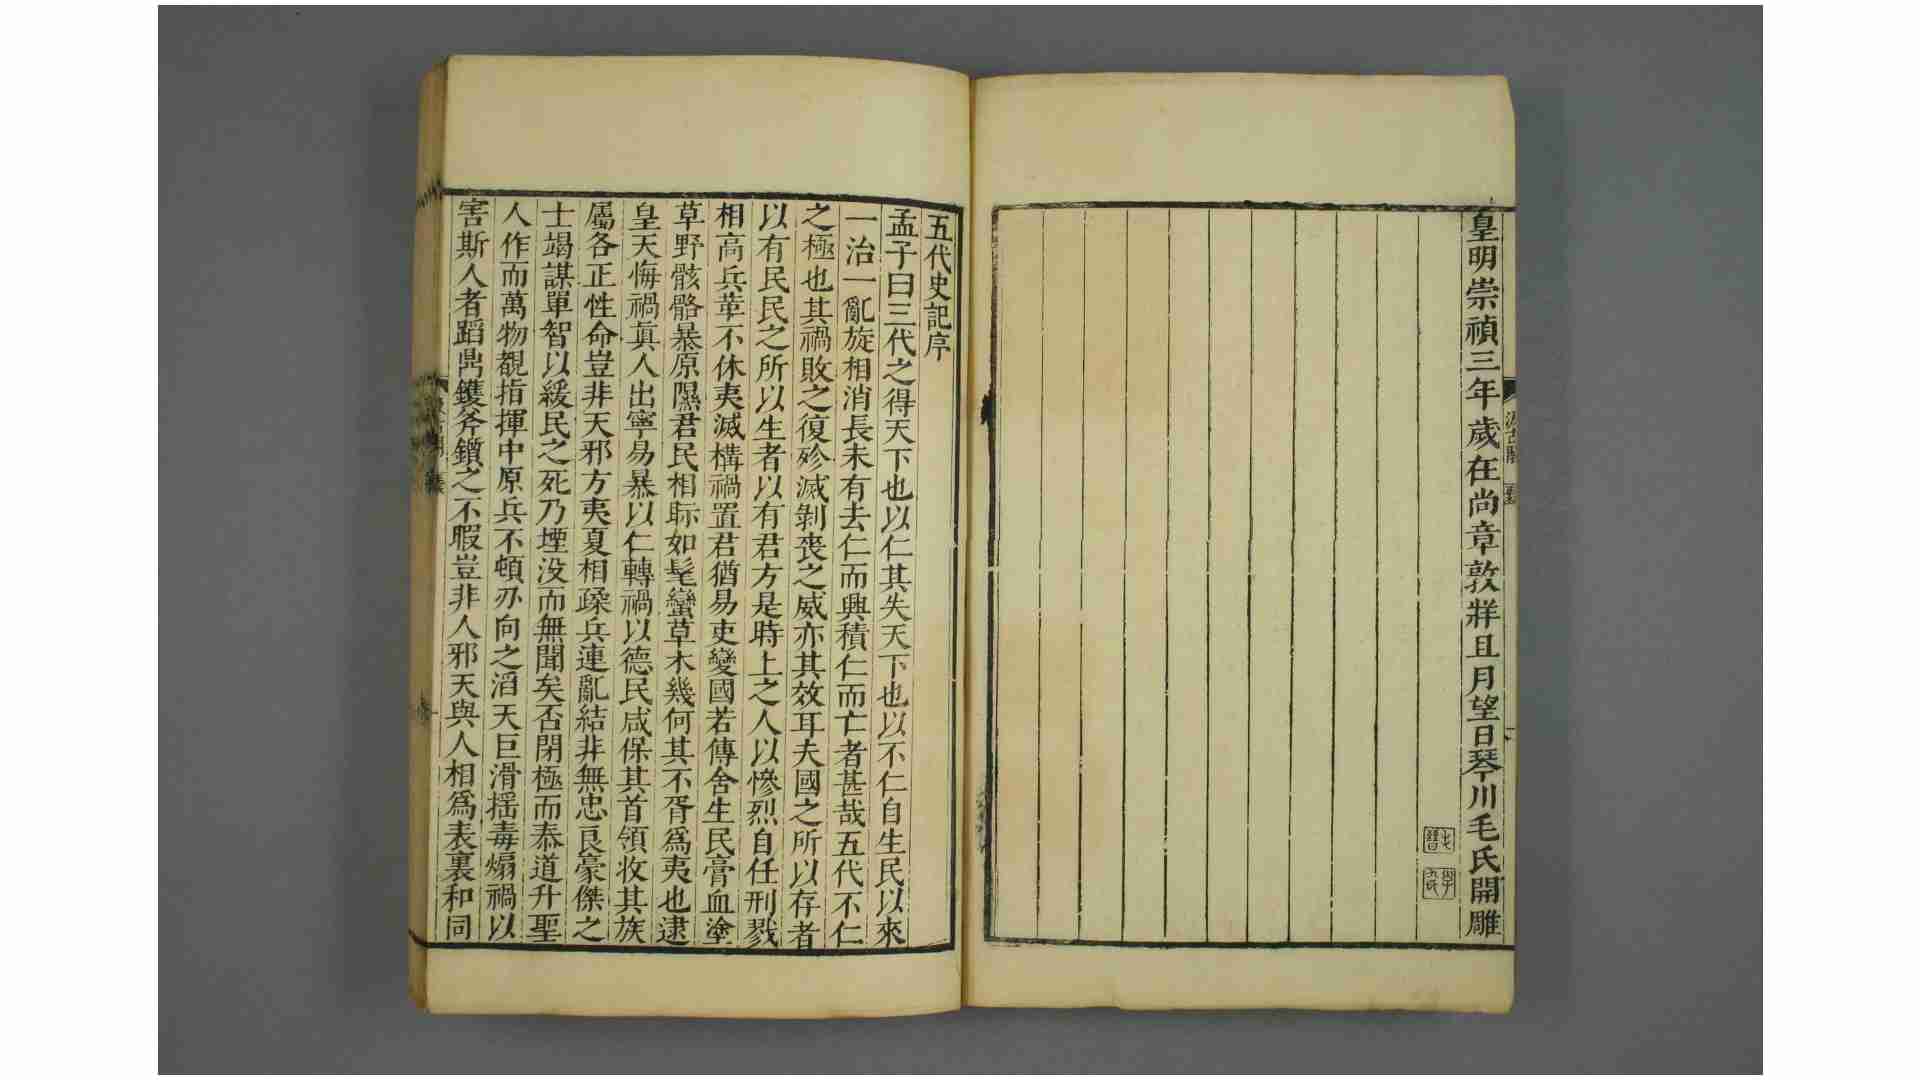 皇明崇禎三年歲在尚章敦牂且月望日琴川毛氏開雕
汲古閣
五代史記序
孟子曰三代之得天下也以仁其失天下也以不仁自生民以來
一治一亂旋相消長未有去仁而興積仁而亡者甚哉五代不仁
之極也其禍敗之復殄滅剝喪之威亦其效耳夫國之所以存者
以有民民之所以生者以有君方是時上之人以慘烈自任刑戮
相高兵革不休夷滅構禍置君猶易吏變國若傳舍生民膏血塗
草野骸骼暴原隰君民相眎如髦蠻草木幾何其不胥爲夷也逮
皇天悔禍眞人出寧易暴以仁轉禍以德民咸保其首領收其族
屬各正性命豈非天邪方夷夏相蹂兵連亂結非無忠良豪傑之
士竭謀單智以緩民之死乃堙没而無聞矣否閉極而泰道升聖
人作而萬物覩指揮中原兵不頓刃向之滔天巨滑揺毒煽禍以
害斯人者蹈鼎鑊斧鑕之不暇豈非人邪天與人相爲表裏和同